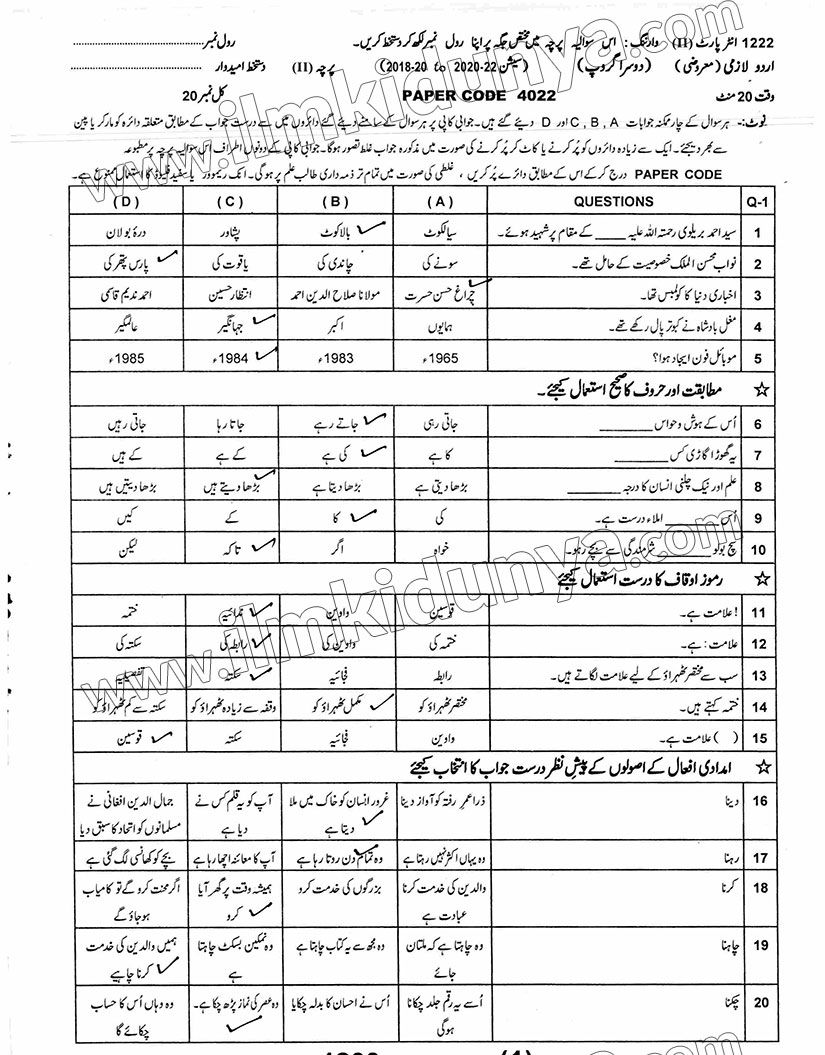 1222 انٹر پارٹ (II) وارننگ: اس سوالیہ پرچہ میں مختص جگہ پر اپنا رول نمبر لکھ کر دستخط کریں۔ رول نمبر
اردو لازمی (معروضی) (دوسرا گروپ) (سیشن 22-2020 to 20-2018) پرچہ (II) دستخط امیدوار
وقت 20 منٹ PAPER CODE 4022 کل نمبر 20
نوٹ:۔ ہر سوال کے چار ممکنہ جوابات A ,B ,C اور D دیئے گئے ہیں۔ جوابی کاپی پر ہر سوال کے سامنے دیئے گئے دائروں میں سے درست جواب کے مطابق متعلقہ دائرہ کو مارکر یا پین
سے بھر دیجئے۔ ایک سے زیادہ دائروں کو پُر کرنے یا کاٹ کر پُر کرنے کی صورت میں مذکورہ جواب غلط تصور ہوگا۔ جوابی کاپی کے دونوں اطراف اس سوالیہ پرچہ پر مطبوعہ
PAPER CODE درج کر کے اس کے مطابق دائرے پُر کریں، غلطی کی صورت میں تمام تر ذمہ داری طالب علم پر ہوگی۔ انک ریموور یا سفید فلیوڈ کا استعمال ممنوع ہے۔
Q-1 QUESTIONS (A) (B) (C) (D)
1 سید احمد بریلوی رحمتہ اللہ علیہ ____ کے مقام پر شہید ہوئے۔ سیالکوٹ بالاکوٹ پشاور درۂ بولان
2 نواب محسن الملک خصوصیت کے حامل تھے۔ سونے کی چاندی کی یاقوت کی پارس پتھر کی
3 اخباری دنیا کا کولمبس تھا۔ چراغ حسن حسرت مولانا صلاح الدین احمد انتظار حسین احمد ندیم قاسمی
4 مغل بادشاہ نے کبوتر پال رکھے تھے۔ ہمایوں اکبر جہانگیر عالمگیر
5 موبائل فون ایجاد ہوا؟ 1965ء 1983ء 1984ء 1985ء
☆ مطابقت اور حروف کا صحیح استعمال کیجئے۔
6 اُس کے ہوش و حواس ________ جاتی رہی جاتے رہے جاتا رہا جاتی رہیں
7 یہ گھوڑا گاڑی کس ________ کا ہے کی ہے کے ہے کے ہیں
8 علم اور نیک چلنی انسان کا درجہ ________ بڑھا دیتی ہے بڑھا دیتا ہے بڑھا دیتے ہیں بڑھا دیتیں ہیں
9 اُس ________ املاء درست ہے۔ کی کا کے کیں
10 سچ بولو ________ شرمندگی سے بچے رہو۔ خواہ اگر تاکہ لیکن
☆ رموز اوقاف کا درست استعمال کیجئے
11 ! علامت ہے۔ قوسین واوین ندائیہ ختمہ
12 علامت : ہے۔ ختمہ کی واوین کی رابطہ کی سکتہ کی
13 سب سے مختصر ٹھہراؤ کے لیے علامت لگاتے ہیں۔ رابطہ فجائیہ سکتہ تفصیلیہ
14 ختمہ کہتے ہیں۔ مختصر ٹھہراؤ کو مکمل ٹھہراؤ کو وقفہ سے زیادہ ٹھہراؤ کو سکتہ سے کم ٹھہراؤ کو
15 ( ) علامت ہے۔ واوین فجائیہ سکتہ قوسین
☆ امدادی افعال کے اصولوں کے پیشِ نظر درست جواب کا انتخاب کیجئے
16 دینا ذرا عمرِ رفتہ کو آواز دینا غرور انسان کو خاک میں ملا آپ کو یہ قلم کس نے جمال الدین افغانی نے
دیتا ہے دیا ہے مسلمانوں کو اتحاد کا سبق دیا
17 رہنا وہ یہاں اکثر نہیں رہتا ہے وہ تمام دن روتا رہا ہے آپ کا معائنہ اچھا رہا ہے بچے کو کھانسی لگ گئی ہے
18 کرنا والدین کی خدمت کرنا بزرگوں کی خدمت کرو ہمیشہ وقت پر گھر آیا اگر محنت کرو گے تو کامیاب
عبادت ہے کرو ہو جاؤ گے
19 چاہنا وہ چاہتا ہے کہ ملتان وہ مجھ سے یہ کتاب چاہتا ہے وہ نمکین بسکٹ چاہتا ہمیں والدین کی خدمت
جائے ہے کرنا چاہیے
20 چکنا اُسے یہ رقم جلد چکانا اُس نے احسان کا بدلہ چکایا وہ عصر کی نماز پڑھ چکا ہے۔ وہ وہاں اُس کا حساب
ہوگی چکائے گا
(1)
www.ilmkidunya.com
www.ilmkidunya.com